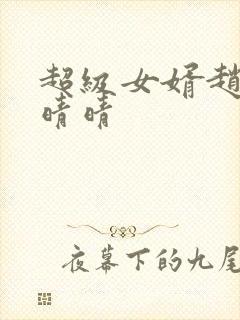 超级女婿趙
晴晴
夜幕下的九尾